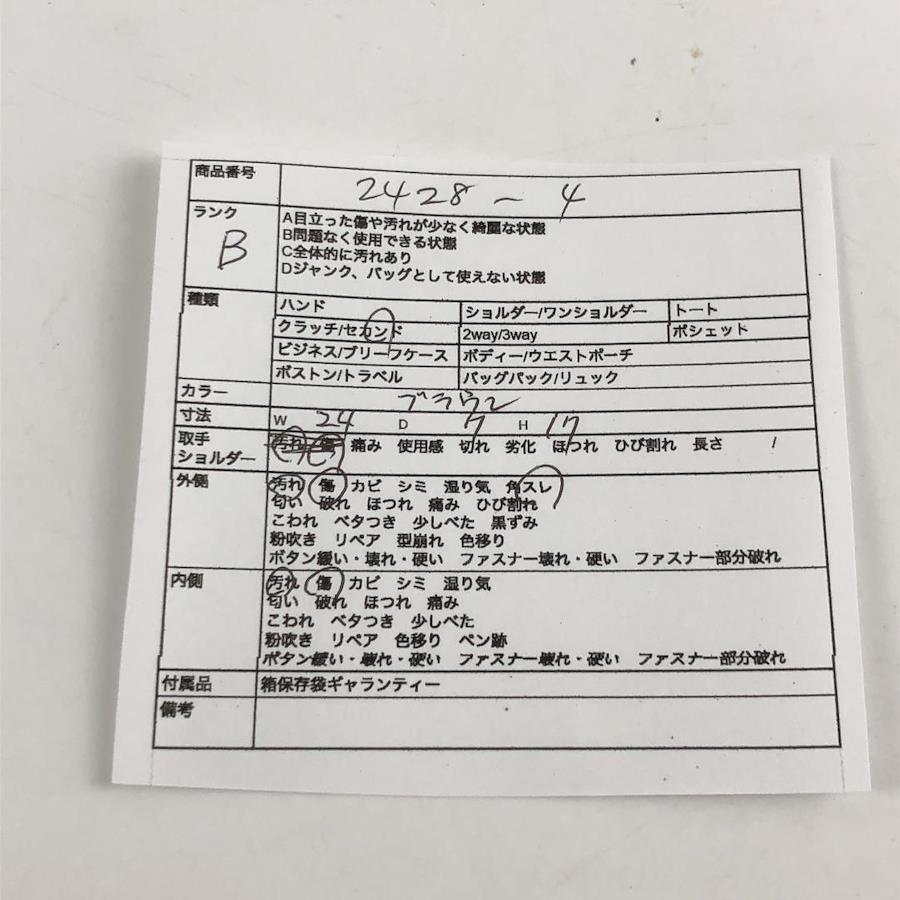 商品番号 2428-4
ランク B
A目立った傷や汚れが少なく綺麗な状態
B問題なく使用できる状態
C全体的に汚れあり
Dジャンク、バッグとして使えない状態
種類 ハンド ショルダー/ワンショルダー トート
クラッチ/セカンド 2way/3way ポシェット
ビジネス/ブリーフケース ボディー/ウエストポーチ
ボストン/トラベル バッグパック/リュック
カラー ブラウン
寸法 W 24 D 7 H 17
取手 汚れ 傷 痛み 使用感 切れ 劣化 ほつれ ひび割れ 長さ /
ショルダー
外側 汚れ 傷 カビ シミ 湿り気 角スレ
匂い 破れ ほつれ 痛み ひび割れ
こわれ ベタつき 少しべた 黒ずみ
粉吹き リペア 型崩れ 色移り
ボタン緩い・壊れ・硬い ファスナー壊れ・硬い ファスナー部分破れ
内側 汚れ 傷 カビ シミ 湿り気
匂い 破れ ほつれ 痛み
こわれ ベタつき 少しべた
粉吹き リペア 色移り ペン跡
ボタン緩い・壊れ・硬い ファスナー壊れ・硬い ファスナー部分破れ
付属品 箱保存袋ギャランティー
備考